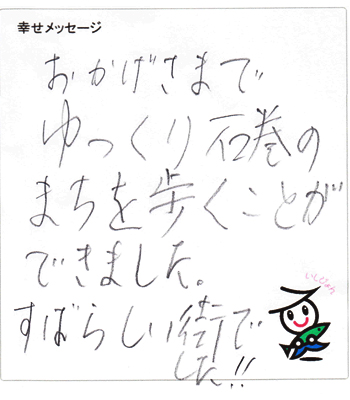 幸せメッセージ
おかげさまで
ゆっくり石巻の
まちを歩くことが
できました。
すばらしい街で
した!!
いしぴょん